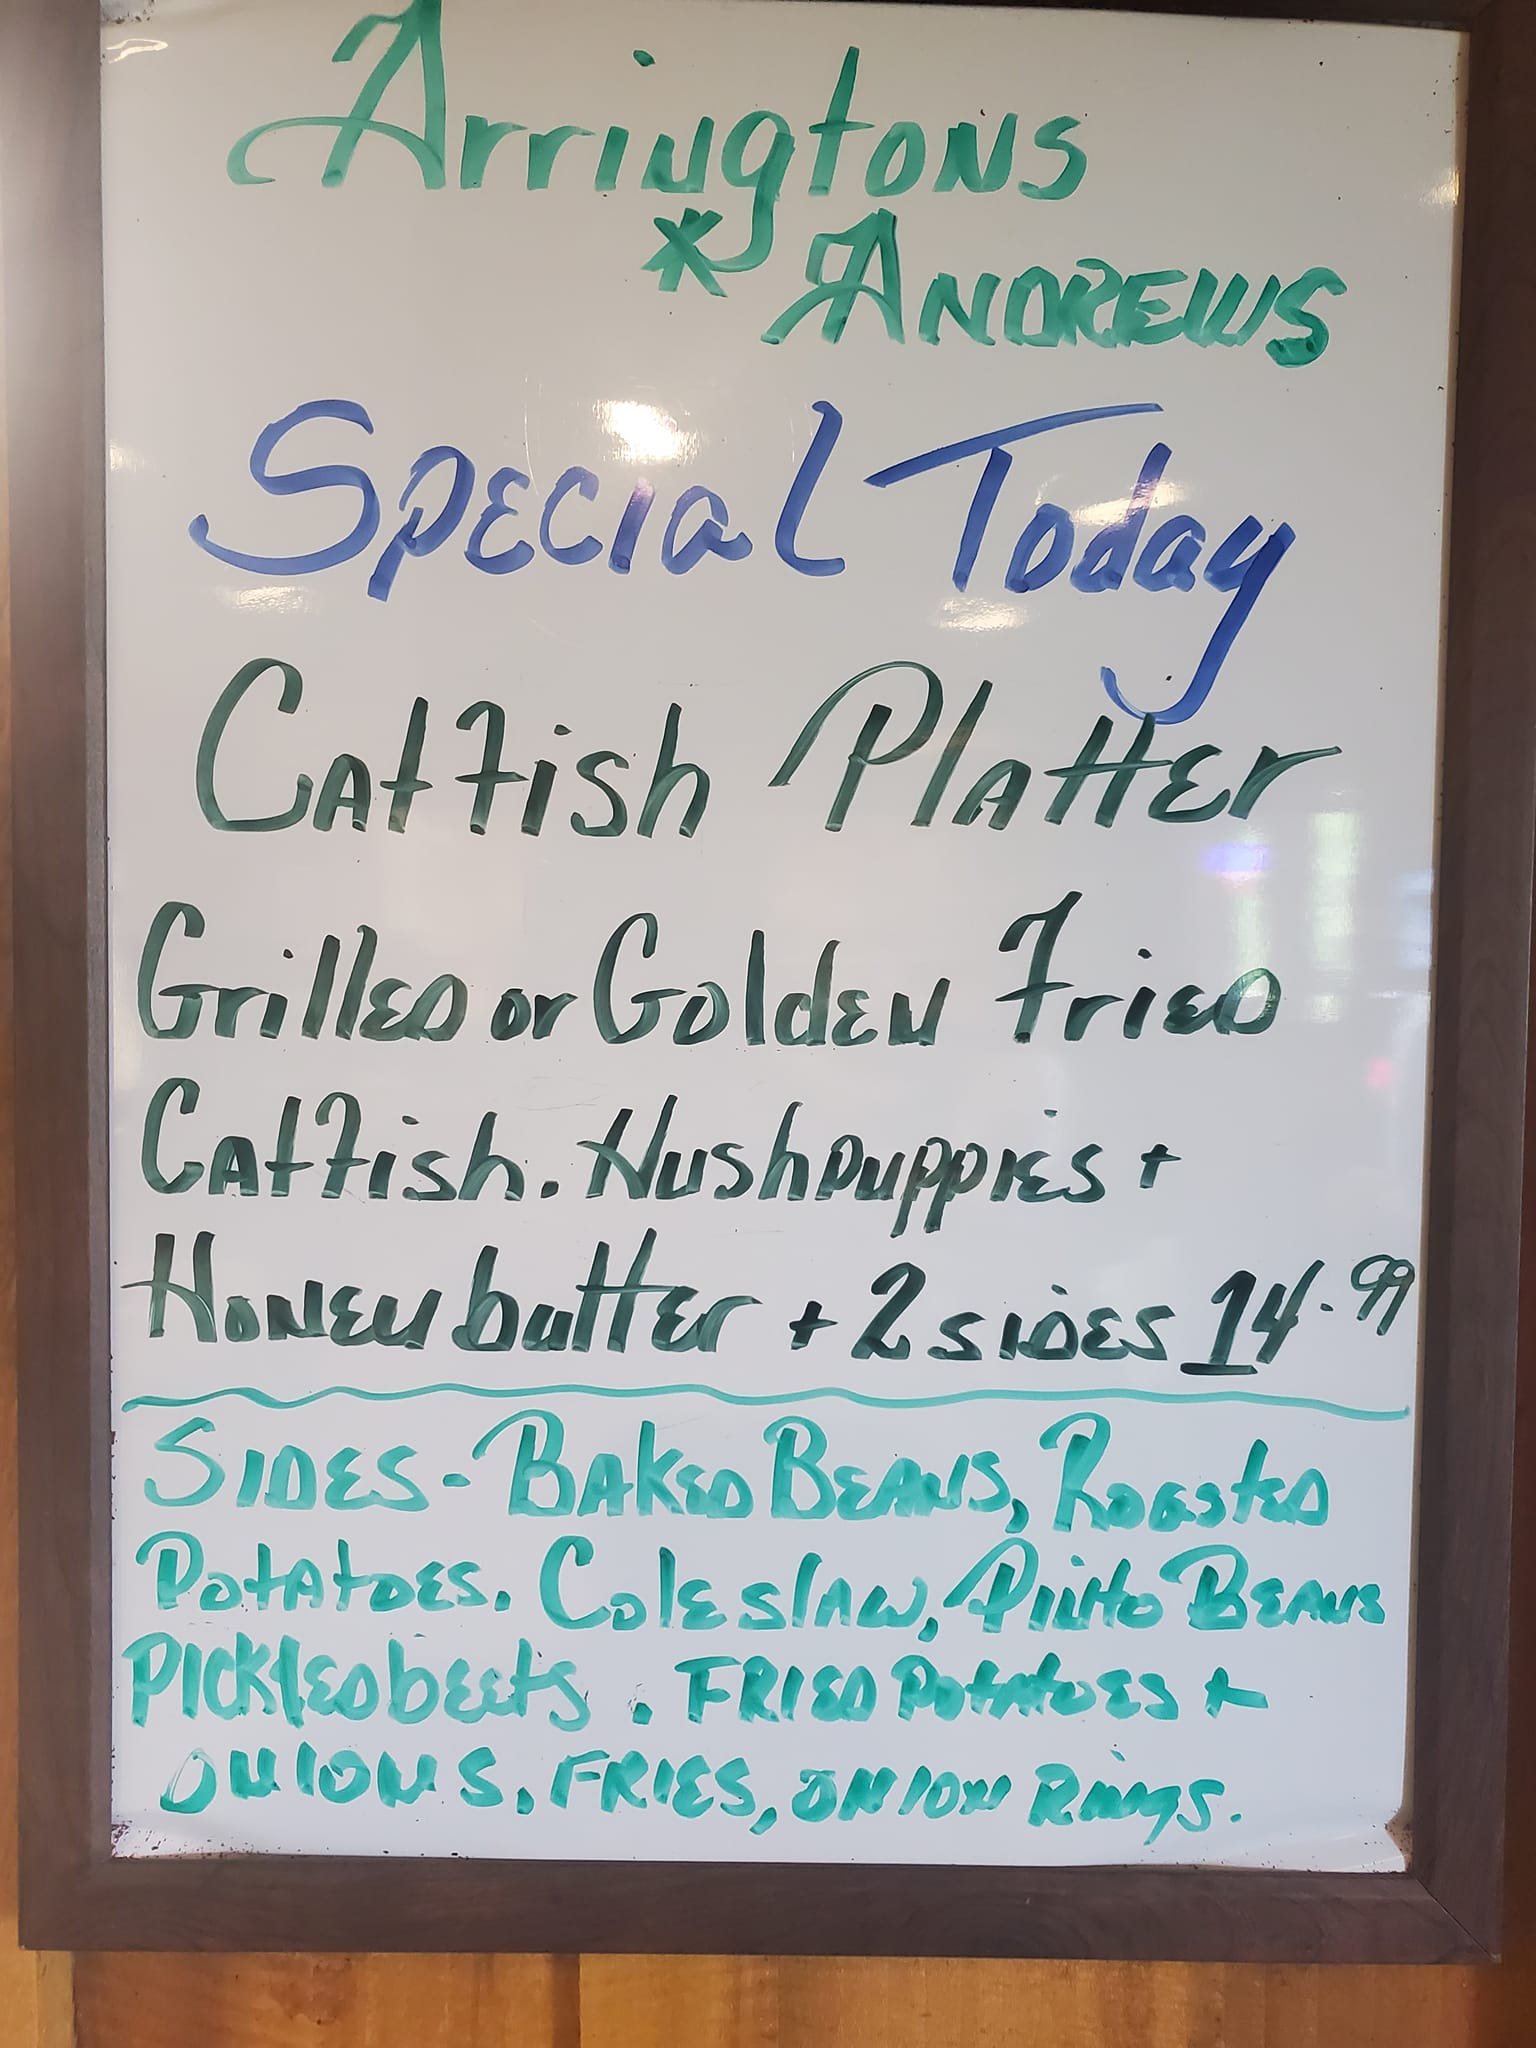 Arringtons
* ANDREWS
Special Today
Catfish Platter
Grilled or Golden Fried
Catfish. Hushpuppies +
Honey butter + 2 sides 14.99
SIDES - Baked Beans, Roasted
Potatoes. Coleslaw, Pinto Beans
Pickled beets. FRIED Potatoes +
ONIONS. FRIES, ONION Rings.